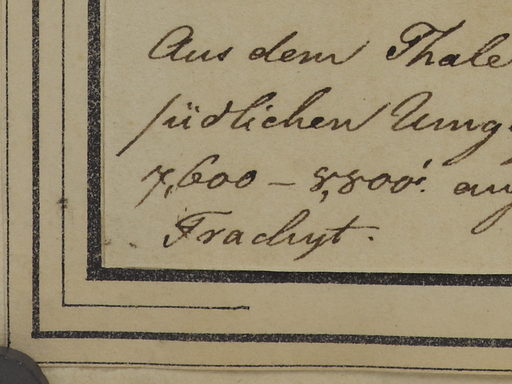 Aus dem Thale
südlichen Umg
7,600 – 8,800'. auf
Trachyt.